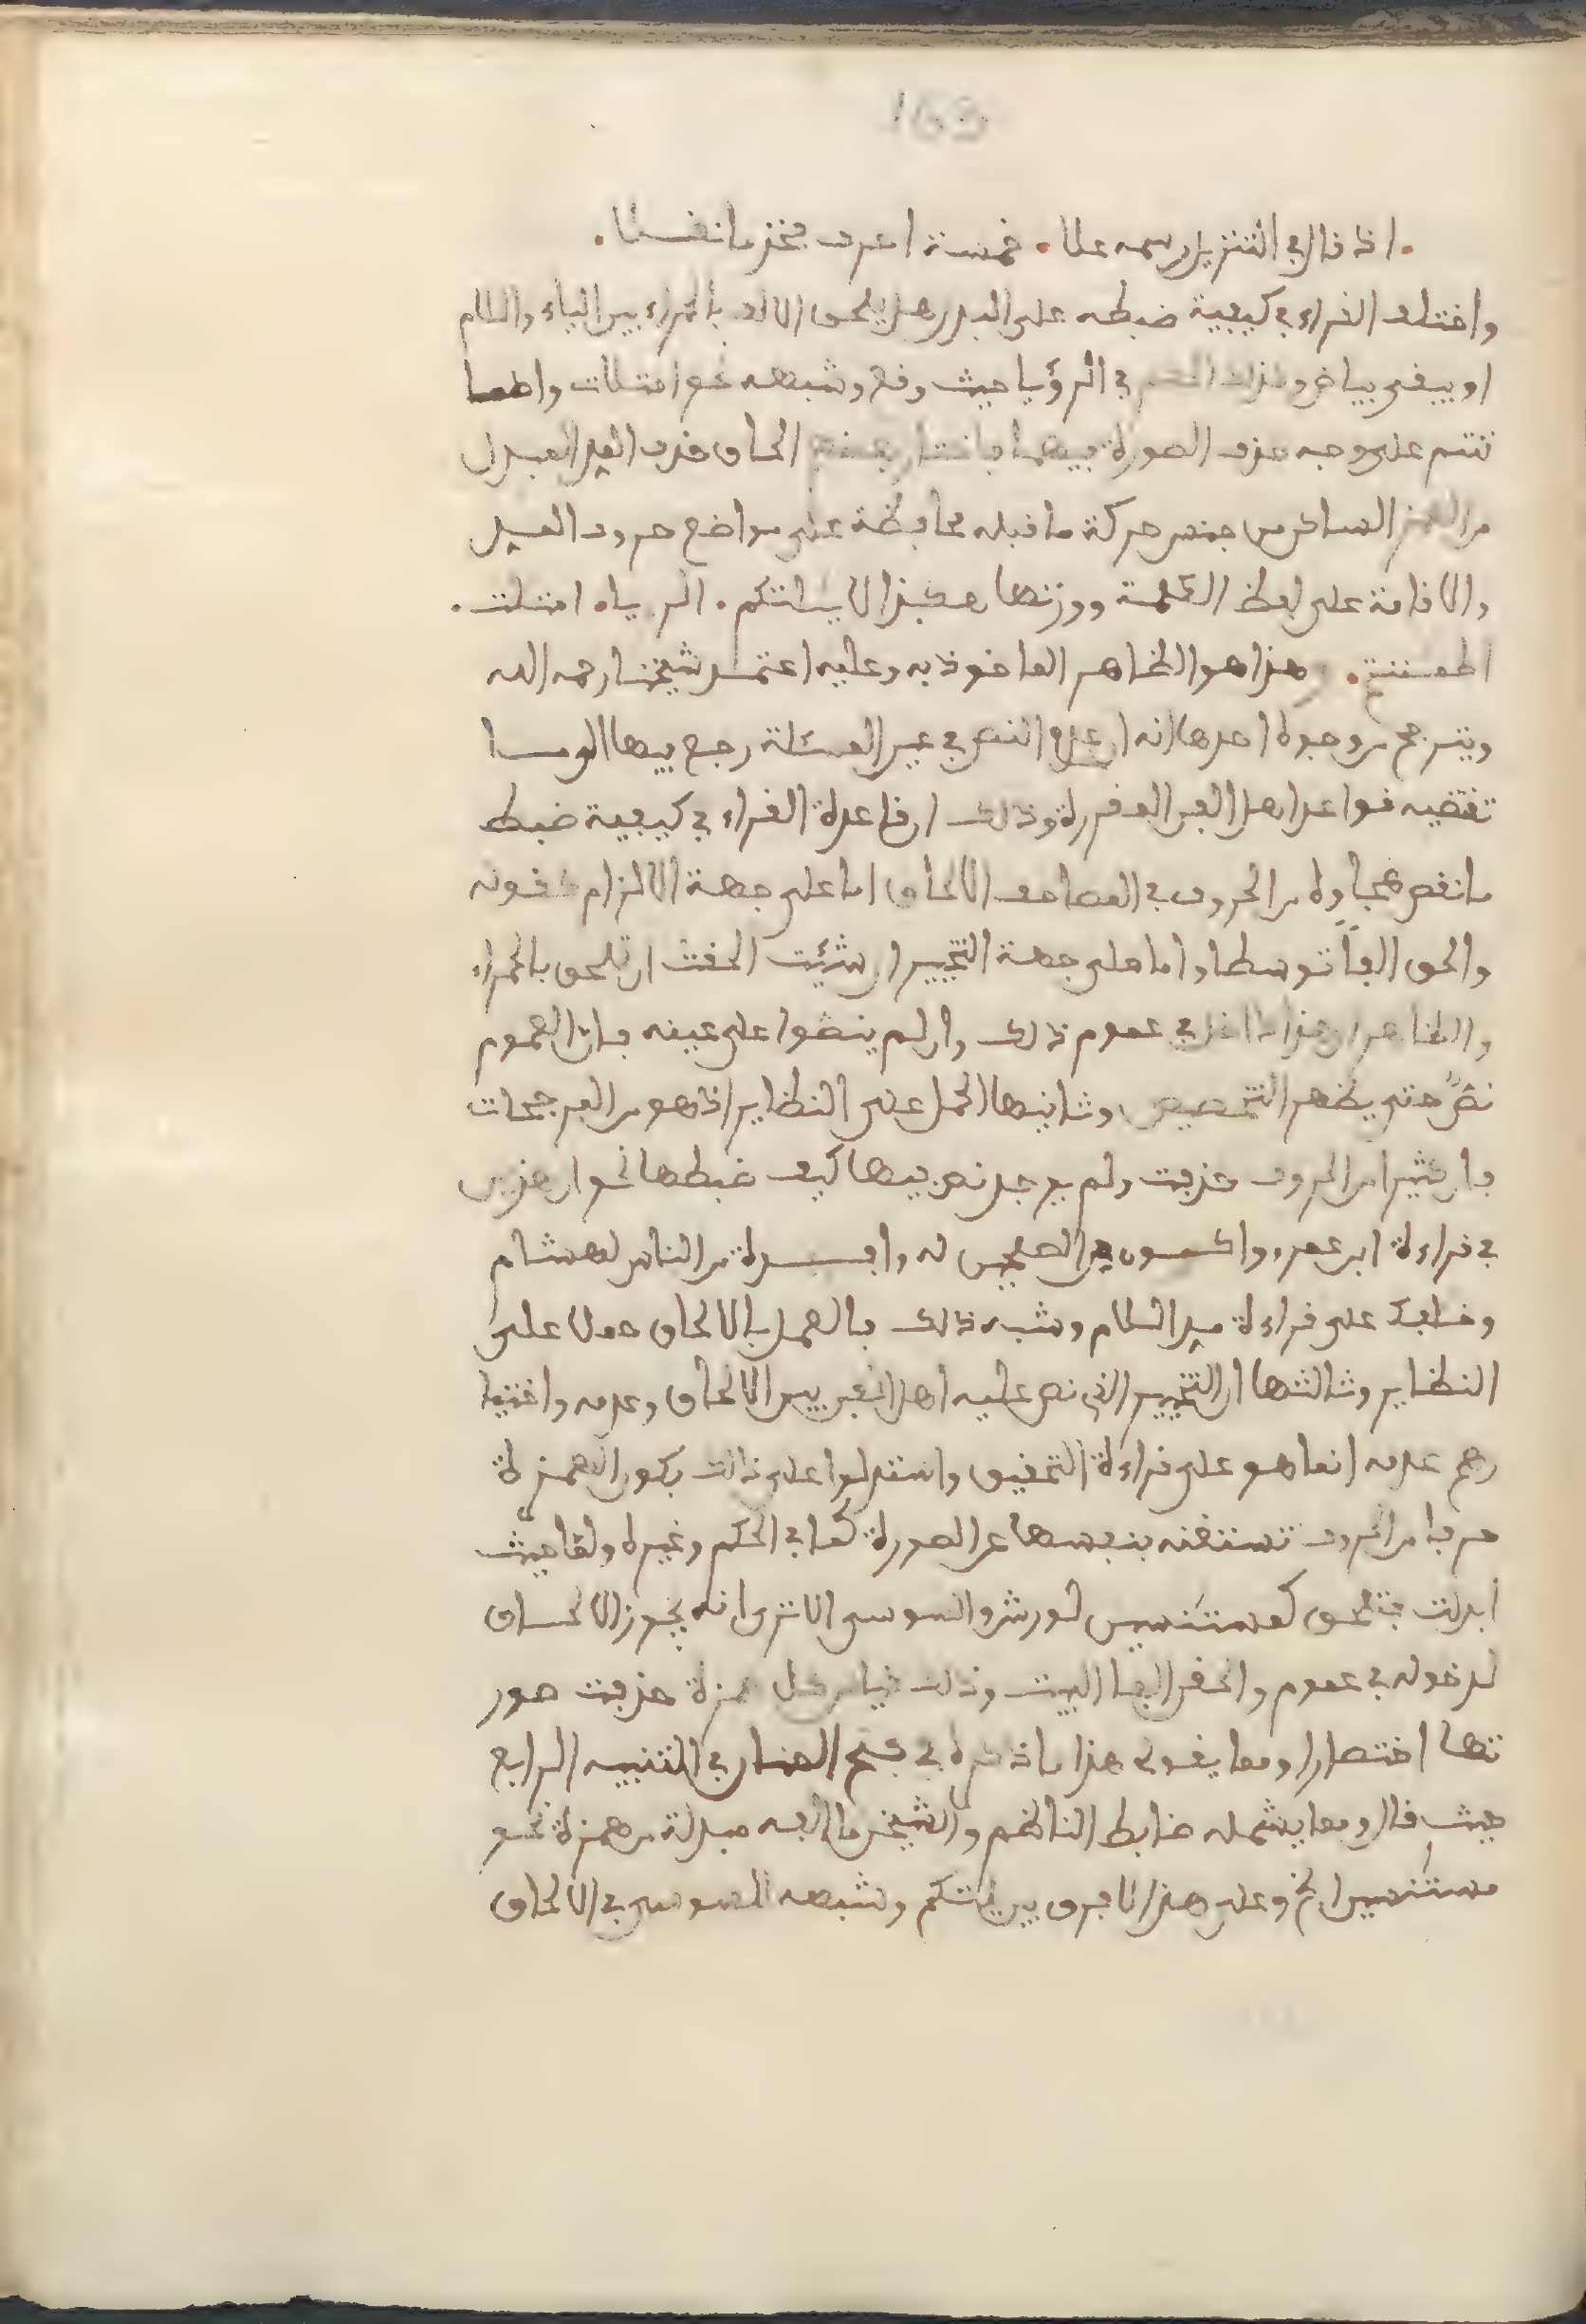 اذ قال في التنزيل رسمه علا خمسة احرف فخذ ما نفسلا
واختلف القراء في كيفية ضبطه على البدل هل يلحق الالف بالحمراء بين الياء واللام
او يبقى بياض وكذلك الحكم في الرؤيا حيث وقع وشبهه نحو امتلات واطما
ننتم على وجه حذف الصورة فيهما الحاق حرف المد المبدل
من الهمز الساكن من جنس حركة ما قبله محافظة على مواضع حروف المد
والاقامة على لفظ الكلمة ووزنها هكذا لا يالتكم الرياا امتلت
اطمننتم هذا هو الظاهر الماخوذ به وعليه اعتمد شيخنا رحمه الله
ويترجح من وجوه احدها انه ان عدم النص في عين المسئلة رجع فيها الى ما
تقتضيه قواعد اهل الفن المقررة وذلك ان قاعدة القراء في كيفية ضبط
ما نقص هجاوه من الحروف في المصاحف الالحاق اما على جهة الالزام كقوله
والحق الفاً توسطا واما على جهة التخيير ان شئت الحقت ان تلحق بالحمراء
والظاهر ان هذا داخل في عموم ذلك وان لم ينصوا على عينه فان العموم
نصٌّ حتى يظهر التخصيص وثانيها الحمل على النظاير اذ هو من المرجحات
فان كثيرا من الحروف حذفت ولم يوجد نص فيها كيف ضبطها نحو ان هذين
في قراءة ابي عمرو واكون من الصلحين له وافيدة من الناس لهشام
وخطيئة على قراءة مد اللام وشبه ذلك فالعمل بالالحاق حملا على
النظاير وثالثها ان التخيير الذي نص عليه اهل الفن بين الالحاق وعدمه واختيا
رهم عدمه انما هو على قراءة التحقيق واستدلوا على ذلك بكون الهمزة
حرفا من الحروف تستغنى بنفسها عن الصورة كما في المحكم وغيره ولما حيث
ابدلت فتلحق كمستنسين لورش والسوسي الا ترى انه يجوز الالحاق
لدخوله في عموم والحقن الفا البيت وذلك قياس كل همزة حذفت صور
تها اختصارا ومما يقوي هذا ما ذكره في فتح المنان في التنبيه الرابع
حيث قال ومما يشمله ضابط الناظم والشيخين ما الفه مبدلة من همزة نحو
مستنسين الخ وعلى هذا لا فرق بين يالتكم وشبهه للسوسي في الالحاق